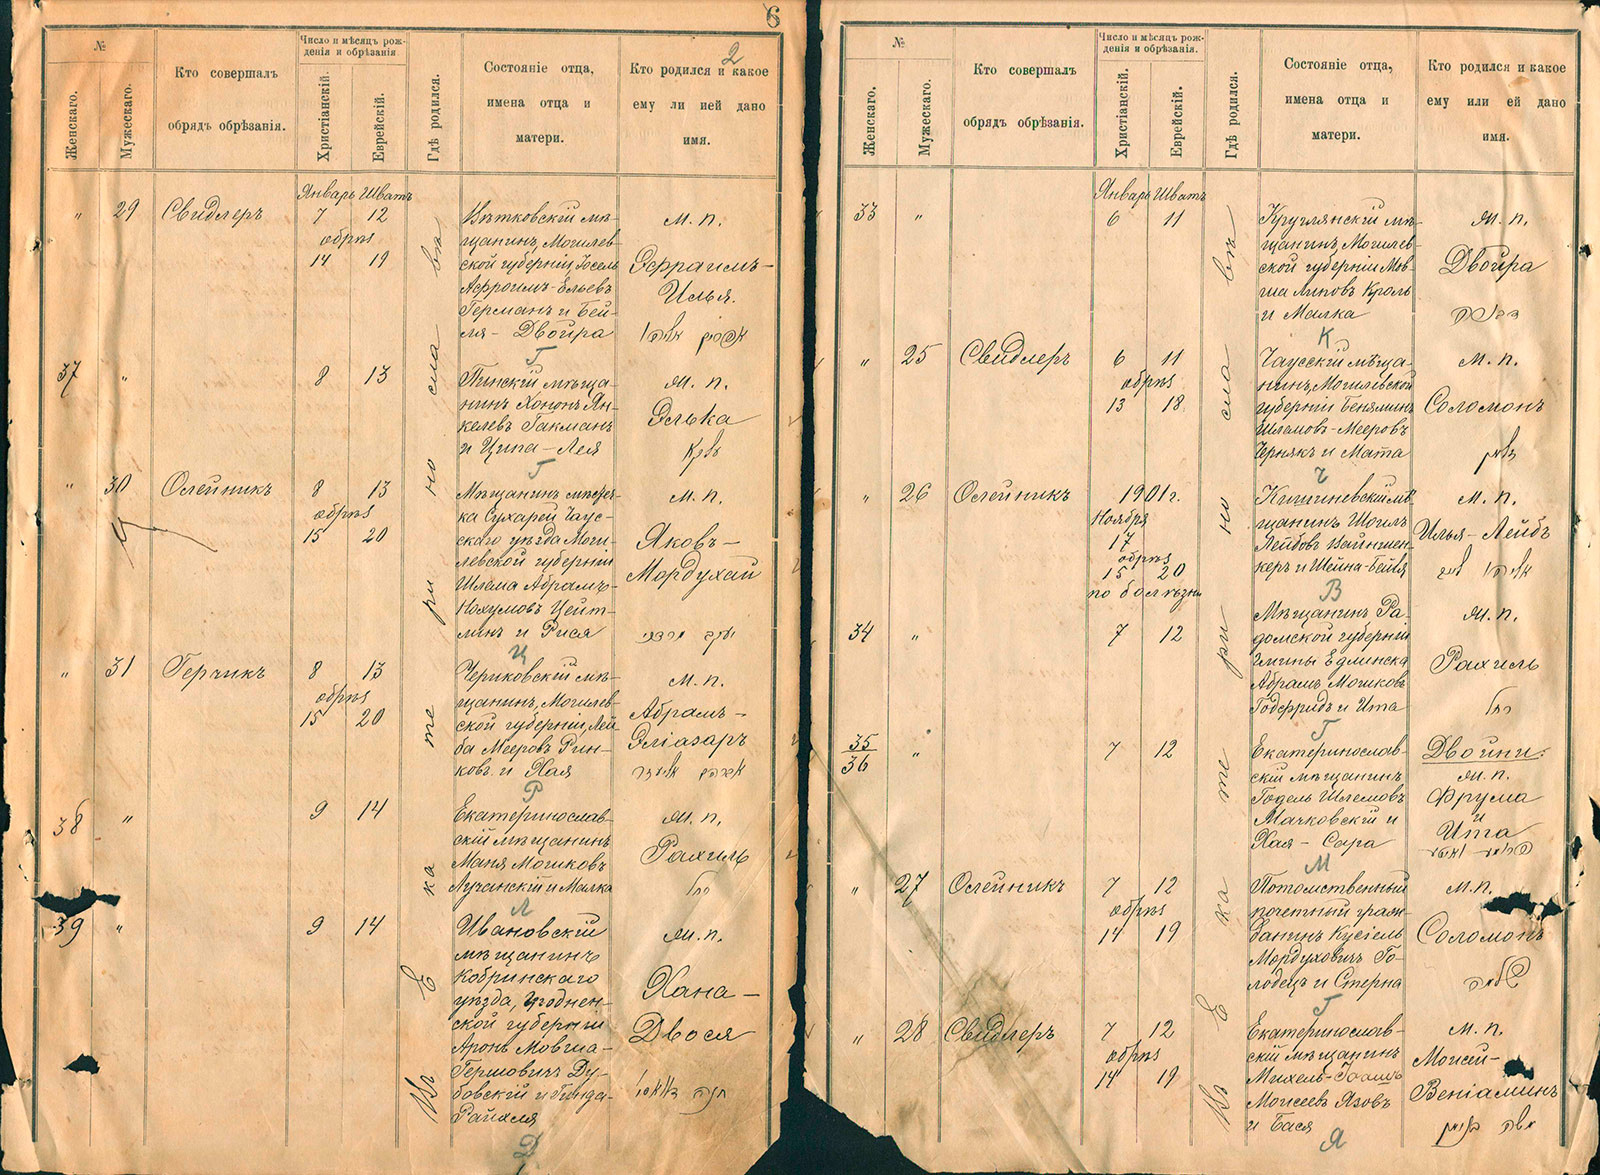 6
2
№
Женскаго.
Мужескаго.
Кто совершалъ
обрядъ обрѣзанія.
Число и мѣсяцъ рож-
денія и обрѣзанія.
Христіанскій.
Еврейскій.
Гдѣ родился.
Состояніе отца,
имена отца и
матери.
Кто родился и какое
ему ли ией дано
имя.
Въ Екатеринославѣ
Январь Шватъ
„ 29 Свидлеръ 7 12
обрѣз
14 19
Вѣтковскій мѣ-
щанинъ, Могилев-
ской губерніи, Іосель
Афроимъ-Ельевъ
Германъ и Бей-
ля-Двойра
м. п.
Эфраимъ-
Илья.
Г
37 „ 8 13
Пинскій мѣща-
нинъ Хононъ Ян-
келевъ Гакманъ
и Ципа-Лея
м. п.
Элька
Г
„ 30 Олейникъ 8 13
обрѣз
15 20
Мѣщанинъ мѣстеч-
ка Сухарей Чаус-
скаго уѣзда Моги-
левской губерніи
Шлема Абрамъ-
Нохумовъ Цейт-
линъ и Рися
м. п.
Яковъ-
Мордухай
Ц
„ 31 Герчикъ 8 13
обрѣз
15 20
Чериковскій мѣ-
щанинъ, Могилев-
ской губерніи, Лей-
ба Мееровъ Рин-
ковъ и Хая
м. п.
Абрамъ-
Эліазаръ
Р
38 „ 9 14
Екатеринослав-
скій мѣщанинъ
Маня Мошковъ
Лучанскій и Малка
м. п.
Рахиль
רחל
Л
39 „ 9 14
Ивановскій
мѣщанинъ
Кобринскаго
уѣзда, Гроднен-
ской губерніи
Аронъ Мовша-
Гершовичъ Ду-
бовскій и Гинда-
Райхля
м. п.
Хана-
Двося
Д
№
Женскаго.
Мужескаго.
Кто совершалъ
обрядъ обрѣзанія.
Число и мѣсяцъ рож-
денія и обрѣзанія.
Христіанскій.
Еврейскій.
Гдѣ родился.
Состояніе отца,
имена отца и
матери.
Кто родился и какое
ему или ей дано
имя.
Въ Екатеринославѣ
Январь Шватъ
33 „ 6 11
Круглянскій мѣ-
щанинъ, Могилев-
ской губерніи Мов-
ша Липовъ Кроль
и Малка
м. п.
Двойра
К
„ 25 Свидлеръ 6 11
обрѣз
13 18
Чаусскій мѣща-
нинъ, Могилевской
губерніи Бенямин
Шлемовъ-Мееровъ
Чернякъ и Мата
м. п.
Соломонъ
Ч
„ 26 Олейникъ 1901 г.
Ноября
17
обрѣз
15 20
по болѣзни
Кишиневскій мѣ-
щанинъ Шоилъ
Лейбовъ Вайншен-
керъ и Шейна-Бейля
м. п.
Илья-Лейбъ
В
34 „ 7 12
Мѣщанинъ Ра-
домской губерніи
гмины Едлинска
Абрамъ Мошковъ
Годфридъ и Ита
м. п.
Рахиль
רחל
Г
35
36 „ 7 12
Екатеринослав-
скій мѣщанинъ
Годель Шлемовъ
Мачковскій и
Хая-Сара
Двойни:
м. п.
Фрума
и
Ита
М
„ 27 Олейникъ 7 12
обрѣз
14 19
Потомственный
почетный граж-
данинъ Кусіель
Мордуховичъ Го-
лодецъ и Стерна
м. п.
Соломонъ
Г
„ 28 Свидлеръ 7 12
обрѣз
14 19
Екатеринослав-
скій мѣщанинъ
Михель-
Моисеевъ Язовъ
и Бася
м. п.
Моисей-
Веніаминъ
Я